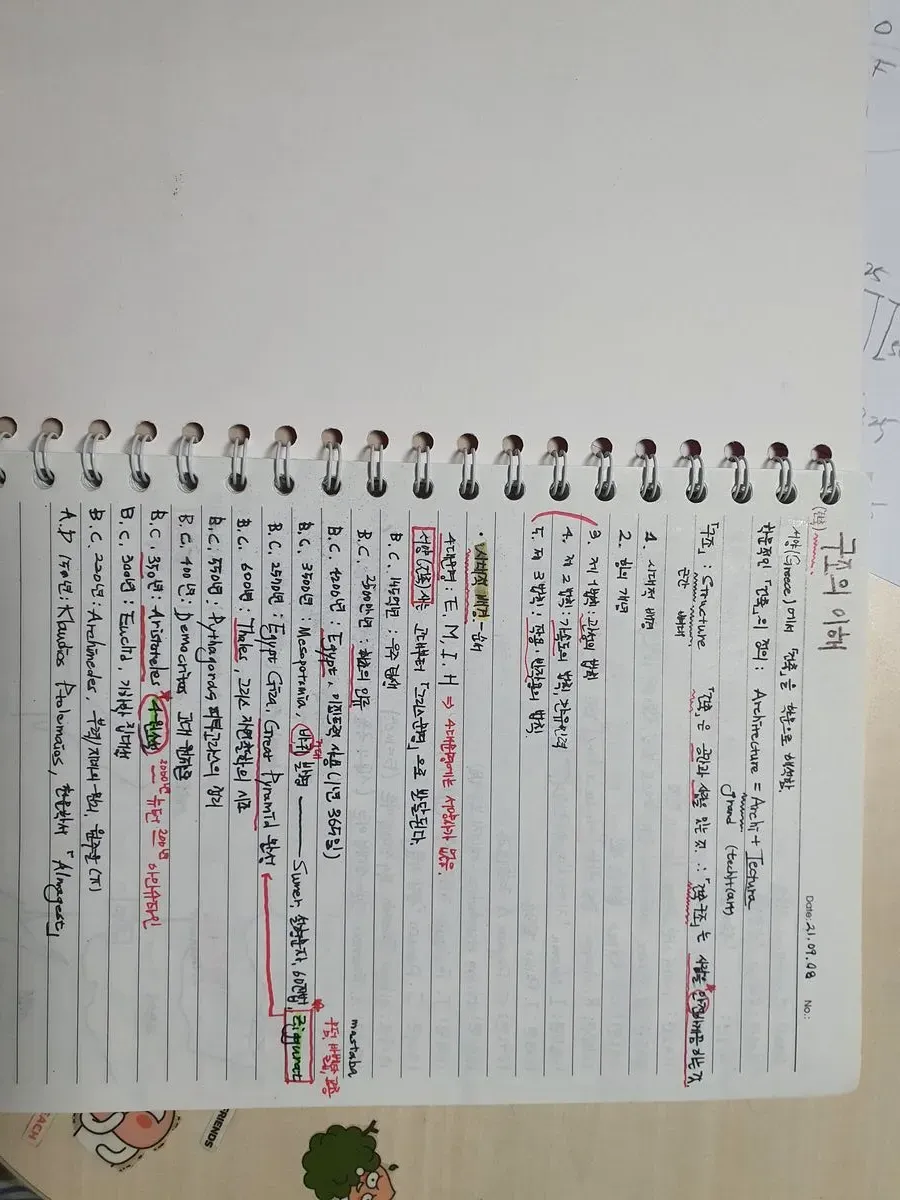 구조의 이해
(건축)
Date: 21.09.08 No.:
서양(Greece)에서 「건축」을 학문으로 해석함
학문적인 「건축」의 정의: Architecture = Archi + Tectura
grand (tech+art)
「구조」: Structure 「건축」은 공간과 사람을 잇는 것. ∴「건축구조」는 사람을 안전하게끔 하는 것.
1. 시대적 배경
2. 힘의 개념
3. 제 1법칙: 관성의 법칙
4. 제 2법칙: 가속도의 법칙, 만유인력
5. 제 3법칙: 작용·반작용의 법칙
• 시대적 배경 - 순서
4대문명: E, M, I, H ⇒ 4대문명에는 서양사가 없음.
서양(건축)사는 고대부터 「그리스문명」으로 발달된다.
B.C. 145억년: 우주 탄생
B.C. 2500만년: 최초의 인류
mastaba
B.C. 4200년: Egypt, 이집트력 사용 (1년 365일)
B.C. 3500년: Mesopotamia, 바퀴 발명 — Sumer, 설형문자, 60진법, Ziggurat
B.C. 2500년: Egypt Giza, Great Pyramid 완성
B.C. 600년: Thales, 그리스 자연철학의 시조
B.C. 550년: Pythagoras 피타고라스의 정리
B.C. 400년: Democritos 고대 원자론
B.C. 350년: Aristoteles 4원소설 — 2000년 뉴턴 — 200년 아인슈타인
B.C. 300년: Euclid 기하학 집대성
B.C. 220년: Archimedes, 부력/지레의 원리, 원주율(π)
A.D 150년: Klaudios Ptolemaios, 천문학서 「Almagest」
FRIENDS